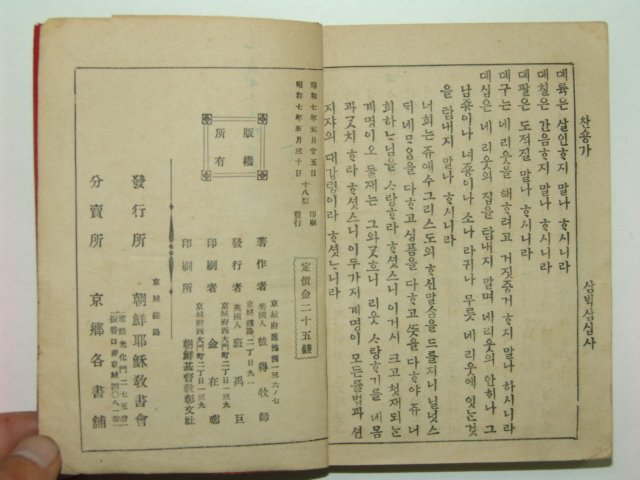 찬숑가
삼빅삼십사
뎨륙은 살인ᄒᆞ지 말나 ᄒᆞ시니라
뎨칠은 간음ᄒᆞ지 말나 ᄒᆞ시니라
뎨팔은 도젹질 말나 ᄒᆞ시니라
뎨구는 네 리웃을 해ᄒᆞ려고 거짓증거 ᄒᆞ지 말나 하시니라
뎨십은 네 리웃의 집을 탐내지 말며 네 리웃의 안히나 그
남죵이나 녀죵이나 소나 라귀나 무릇 네 리웃에 잇는 것
을 탐내지 말나 ᄒᆞ시니라
너희는 쥬예수그리스도의 ᄒᆞ신 말솜을 드를지니 닐넛스
되 네 ᄆᆞ음을 다ᄒᆞ고 셩픔을 다ᄒᆞ고 ᄯᅳᆺ을 다ᄒᆞ야 쥬 너
희 하ᄂᆞ님을 ᄉᆞ랑ᄒᆞ라 ᄒᆞ셧스니 이거시 크고 첫재되는
계명이오 둘재는 그와 ᄀᆞᆺᄒᆞ니 리웃 ᄉᆞ랑ᄒᆞ기를 네 몸
과 ᄀᆞᆺ치 ᄒᆞ라 ᄒᆞ셧스니 이 두가지 계명이 모든 률법과 션
지쟈의 대강령이라 ᄒᆞ셧ᄂᆞ니라
昭和七年五月廿五日 印刷
昭和七年五月三十日 十八版 發行
版權
所有
定價金二十五錢
著作者
英國人 彼得牧師
發行者
京城府鍾路二丁目九一
英國人 班禹巨
印刷者
京城府西大門町二丁目一三九
金在
印刷所
京城府西大門町二丁目一三九
朝鮮基督敎彰文社
京城鍾路
發行所 朝鮮耶穌敎書會
電話光化門二七五
振替口座京城四〇八一
分賣所 京鄕各書舖